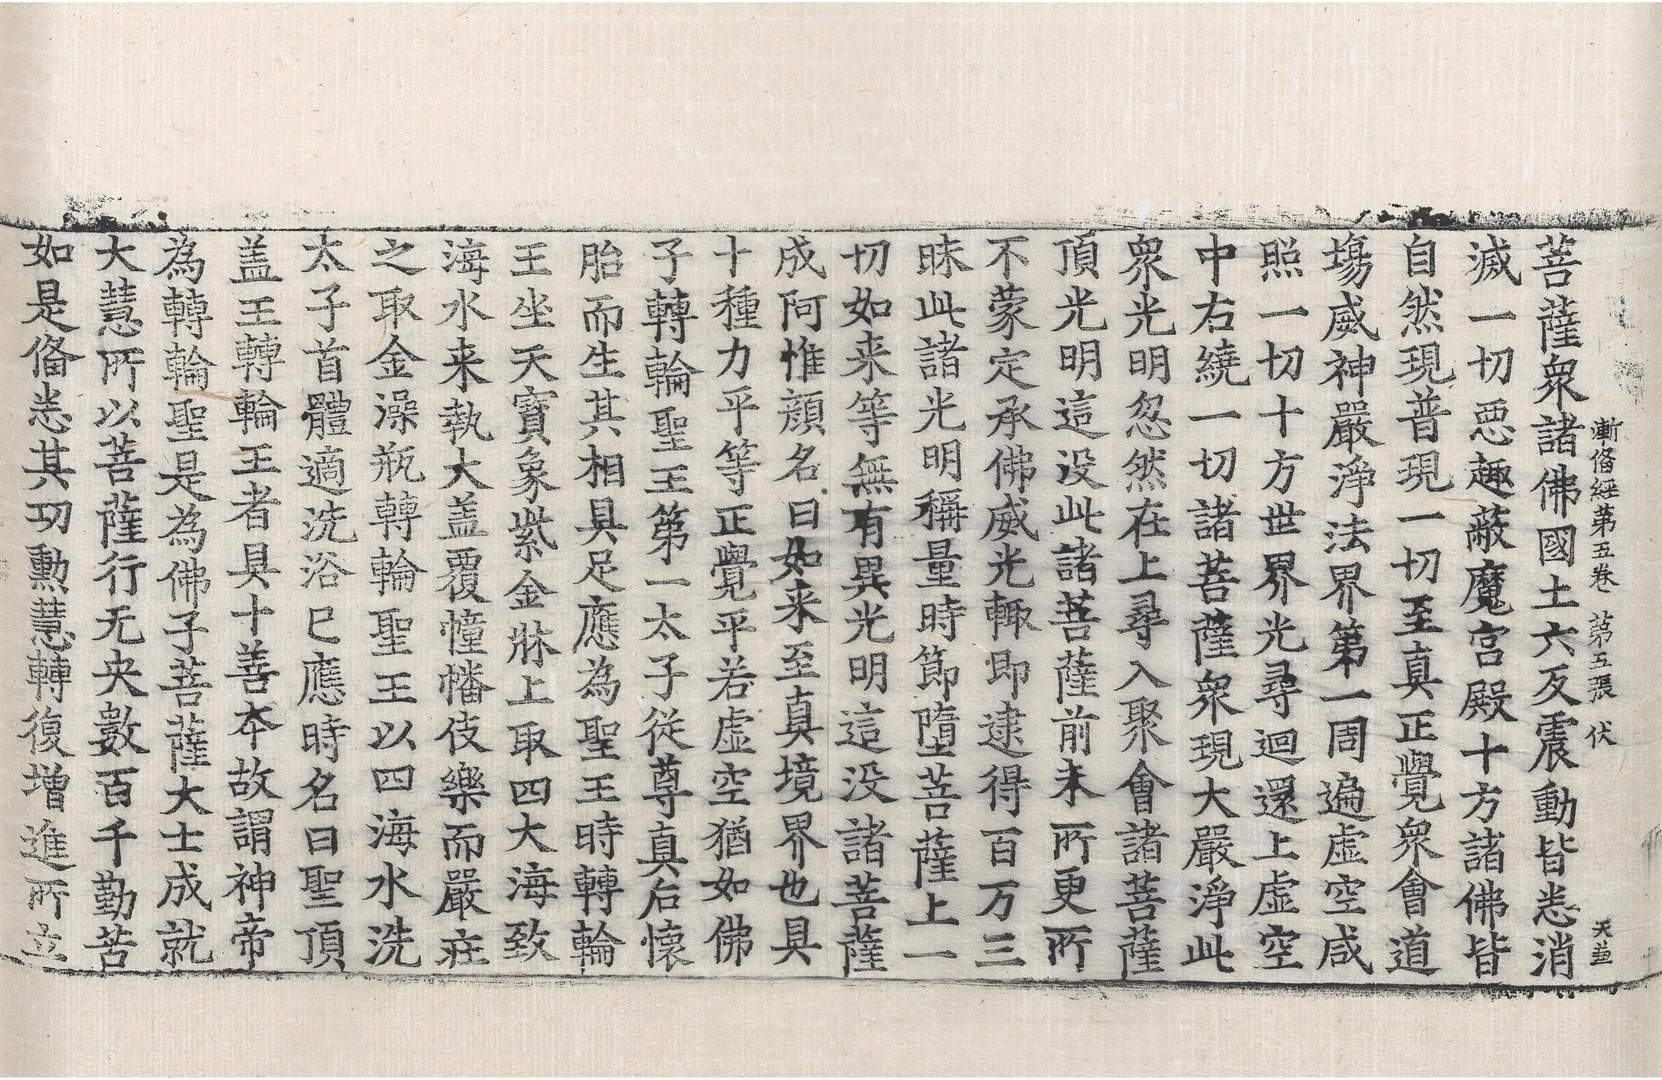 漸俻經第五卷 第五張 伏
菩薩衆諸佛國土六反震動皆悉消
滅一切惡趣蔽魔宮殿十方諸佛皆
自然現普現一切至真正覺衆會道
場威神嚴淨法界第一周遍虛空咸
照一切十方世界光尋迴還上虛空
中右繞一切諸菩薩衆現大嚴淨此
衆光明忽然在上尋入聚會諸菩薩
頂光明這没此諸菩薩前未所更所
不蒙定承佛威光輙即逮得百万三
昧此諸光明稱量時節墮菩薩上一
切如来等無有異光明這没諸菩薩
成阿惟顔名曰如来至真境界也具
十種力平等正覺平若虛空猶如佛
子轉輪聖王第一太子従尊真后懷
胎而生其相具足應為聖王時轉輪
王坐天寶象紫金牀上取四大海致
海水来執大盖覆幢幡伎樂而嚴莊
之取金澡瓶轉輪聖王以四海水洗
太子首體適洗浴已應時名曰聖頂
盖王轉輪王者具十善本故謂神帝
為轉輪聖是為佛子菩薩大士成就
大慧所以菩薩行无央數百千勤苦
如是俻悉其功勲慧轉復增進所立